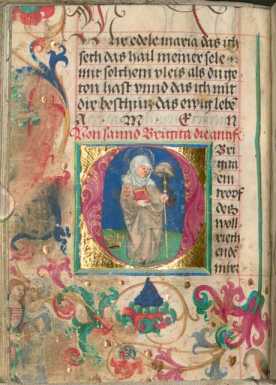 edele maria das ich
such das hail meiner sele
mit solchem vleis als du ge
ton hast vnnd das ich mit
dir besitz das ewig lebē
A M E N
Von sannd Brigita die antif
Bri
gita
ein
der
woll
riech
ende